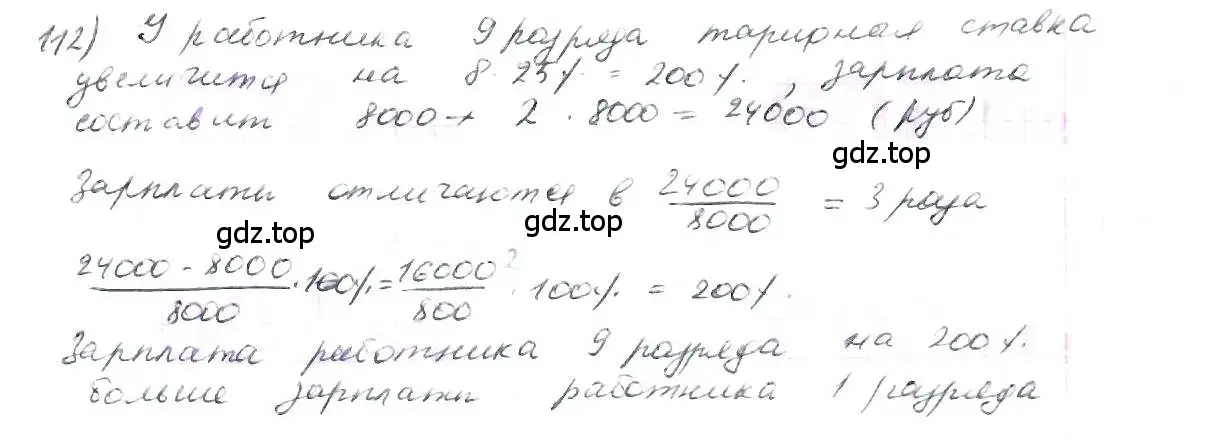 112) У работника 9 разряда тарифная ставка
увеличится на 8 · 25% = 200%, зарплата
составит 8000 + 2 · 8000 = 24000 (руб)
gdz.top
Зарплаты отличаются в 24000/8000 = 3 раза
gdz.top
24000 - 8000/8000 · 100% = 16000/800 · 100% = 200%.
gdz.top
Зарплата работника 9 разряда на 200%
больше зарплаты работника 1 разряда